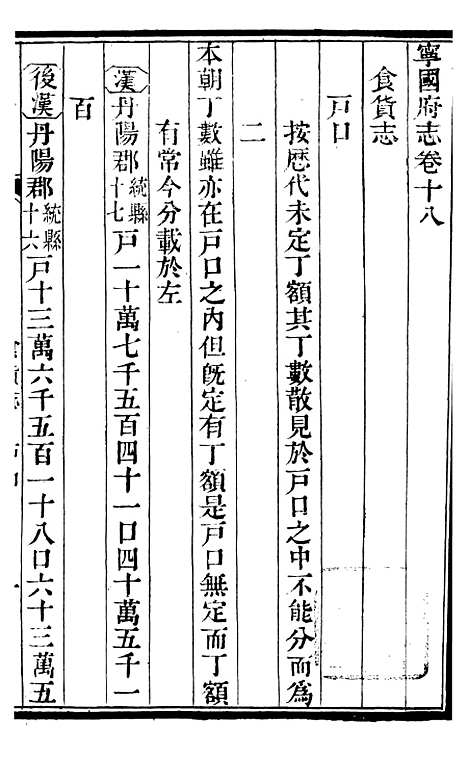 寧國府志卷十八
食貨志
戸口
按歴代未定丁額其丁數散見於戸口之中不能分而爲
二
本朝丁數雖亦在戸口之內但旣定有丁額是戸口無定而丁額
有常今分載於左
漢丹陽郡統縣十七戸一十萬七千五百四十一口四十萬五千一
百
後漢丹陽郡統縣十六戸十三萬六千五百一十八口六十三萬五